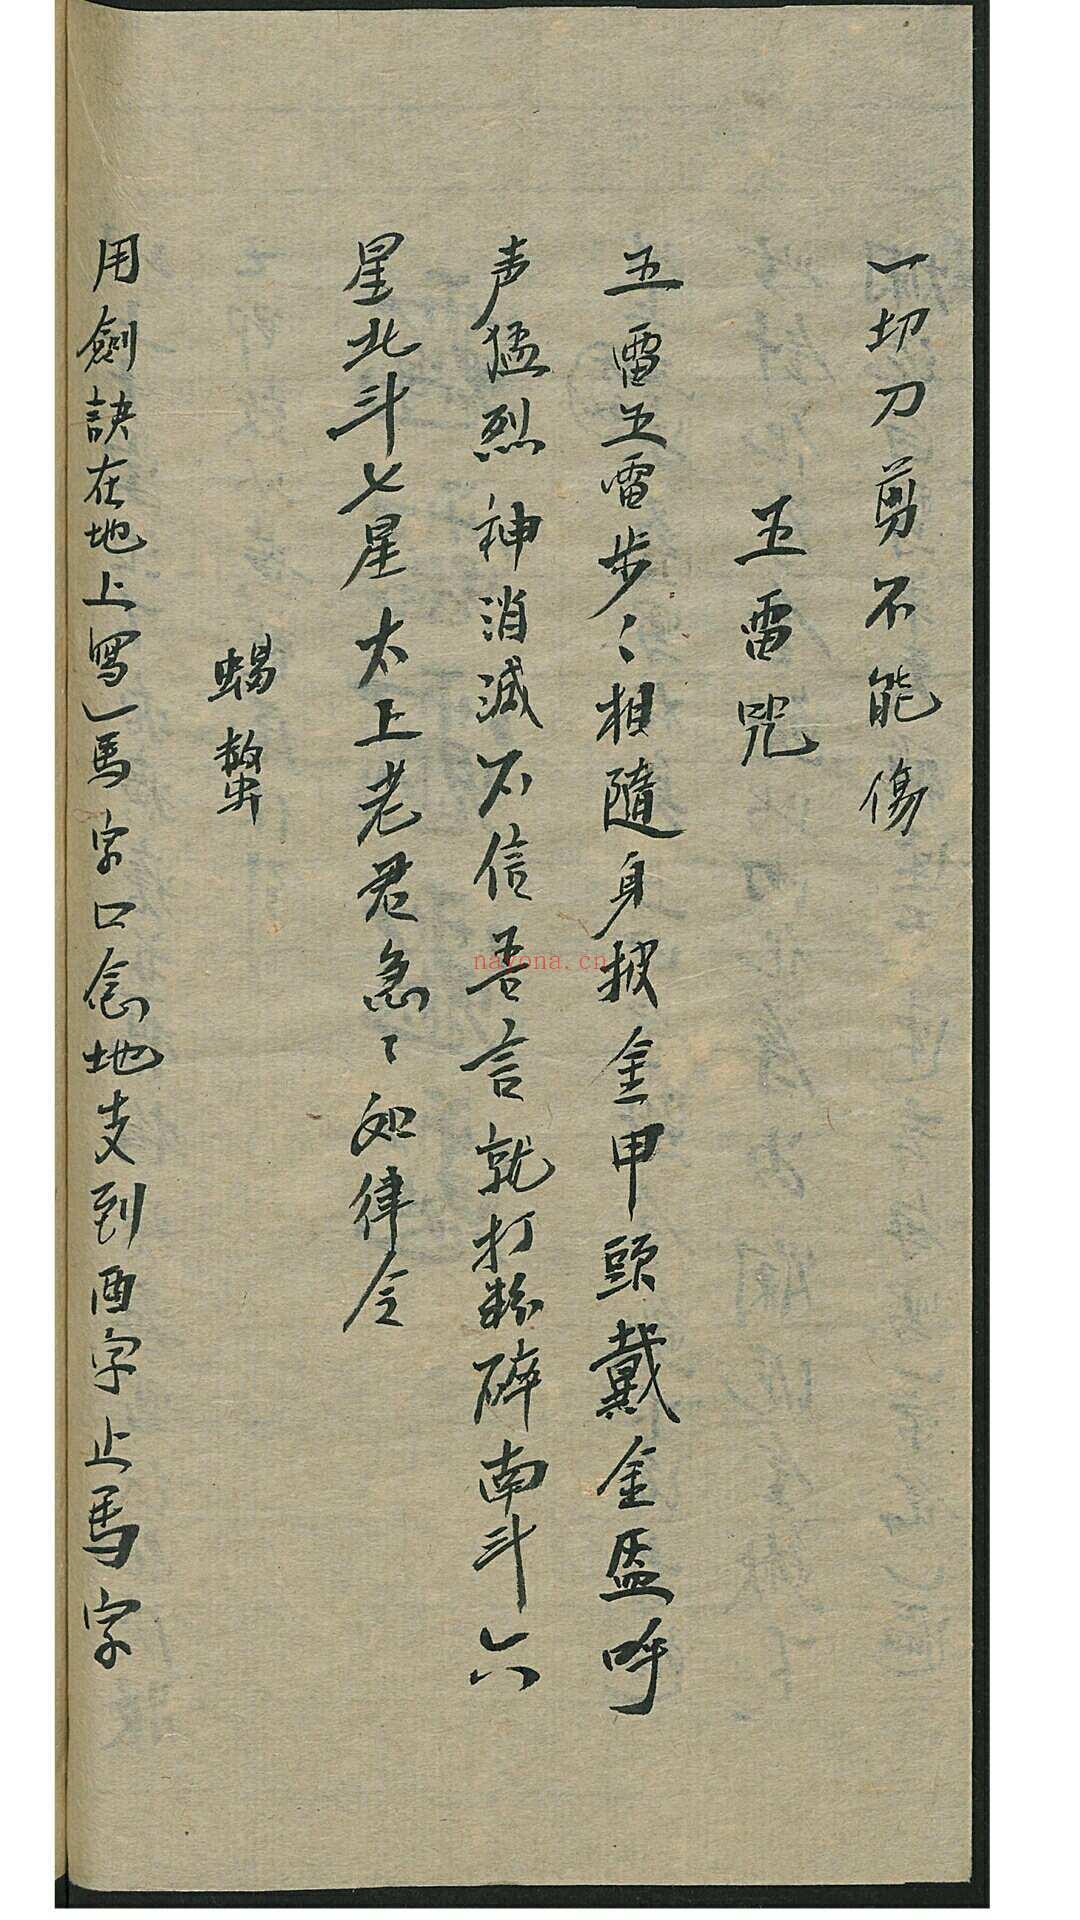 一切刀剪不能傷
五雷咒
五雷五雷步〻相隨身披金甲頭戴金盔呼
声猛烈神消滅不信吾言就打粉碎南斗六
星北斗七星太上老君急〻如律令
蝎螫
用劍訣在地上寫一馬字口念地支到酉字止馬字
nayona.cn